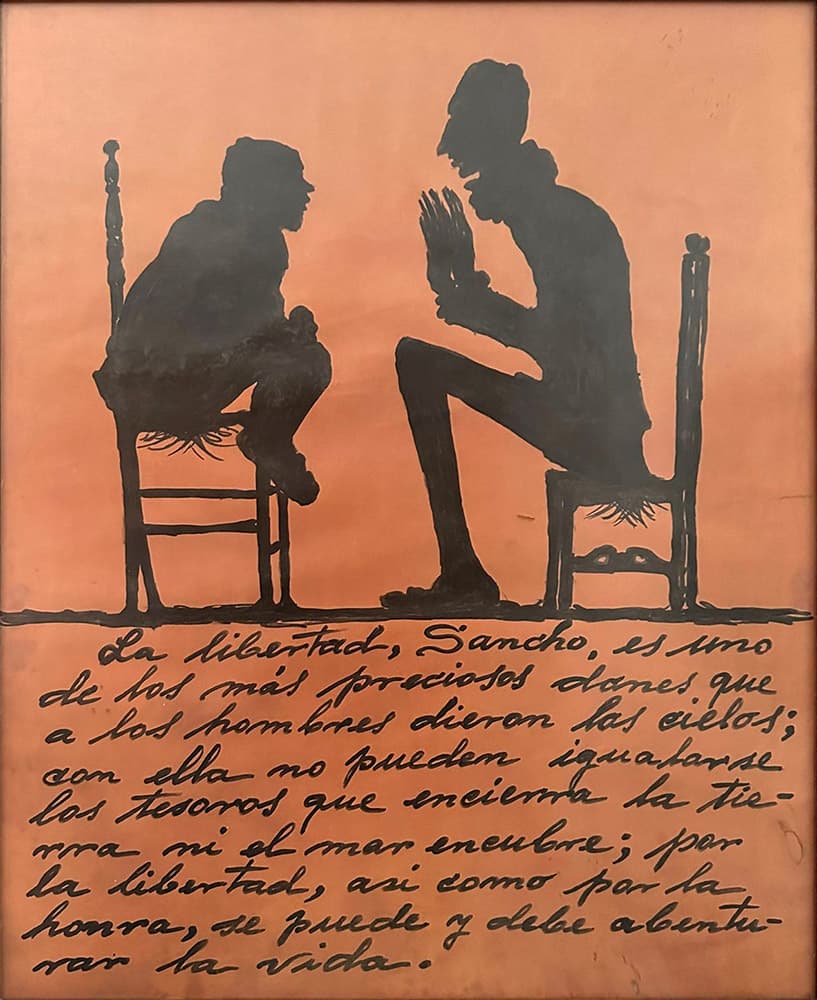 La libertad, Sancho, es uno
de los más preciosos dones que
a los hombres dieron los cielos;
con ella no pueden igualarse
los tesoros que encierra la tie-
rra ni el mar encubre; por
la libertad, asi como por la
honra, se puede y debe abentu-
rar la vida.